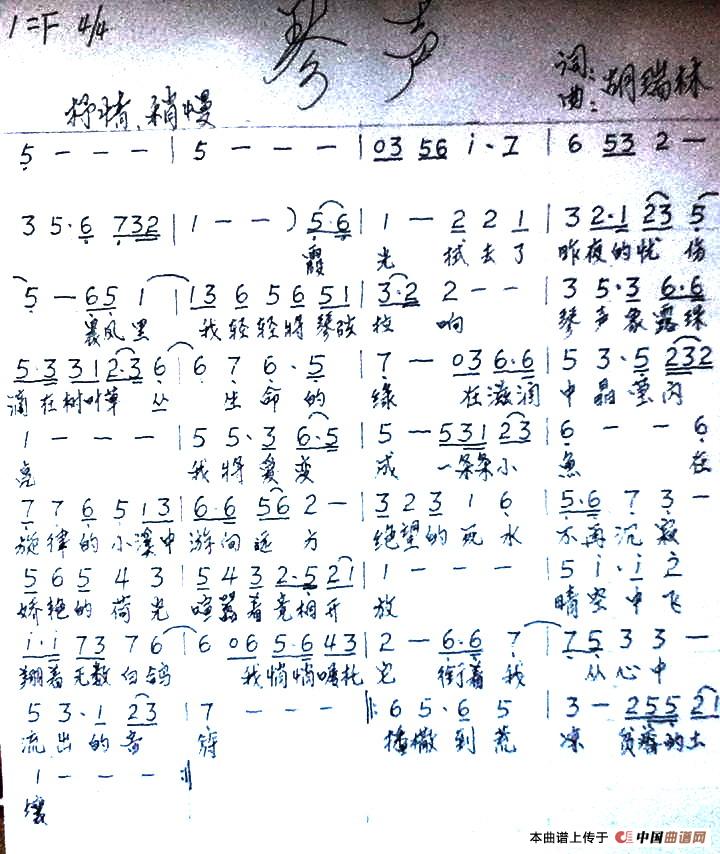 1=F 4/4
琴声
词:
曲: 胡瑞林
抒情、稍慢
5 - - - | 5 - - - | 03 56 i·7 | 6 53 2 -
3 5·6 732 | 1 - - ) 5·6 | 1 - 2 2 1 | 3 2·1 23 5
霞 光 拭去了 昨夜的忧 伤
5 - 65 1 | 13 6 56 51 | 3·2 2 - - | 3 5·3 6·6
晨风里 我轻轻将琴弦 拉 响 琴声象露珠
5·3 31 2·3 6 | 6 7 6·5 | 7 - 03 6·6 | 5 3·5 232
滴在树叶草 丛 生命的 绿 在滋润 中晶莹闪
1 - - - | 5 5·3 6·5 | 5 - 531 23 | 6 - - 6
亮 我将爱变 成 一条条小 鱼 在
7 7 6 5 13 | 6·6 56 2 - | 3 2 3 1 6 | 5·6 7 3 -
旋律的小溪中 游向远方 绝望的死水 不再沉寂
5 6 5 4 3 | 5 4 3 2·5 21 | 1 - - - | 5 i·i 2
娇艳的荷光 喧嚣着竞相开 放 晴空中飞
i·i 73 7 6 | 6 06 5·6 43 | 2 - 6·6 7 | 75 3 3 -
翔着无数白鸽 我悄悄嘱托 它 衔着我 从心中
5 3·1 23 | 7 - - - |: 6 5·6 5 | 3 - 255 21
流出的音 符 播撒到荒 凉 贫瘠的土
1 - - - :|
壤
本曲谱上传于 中国曲谱网